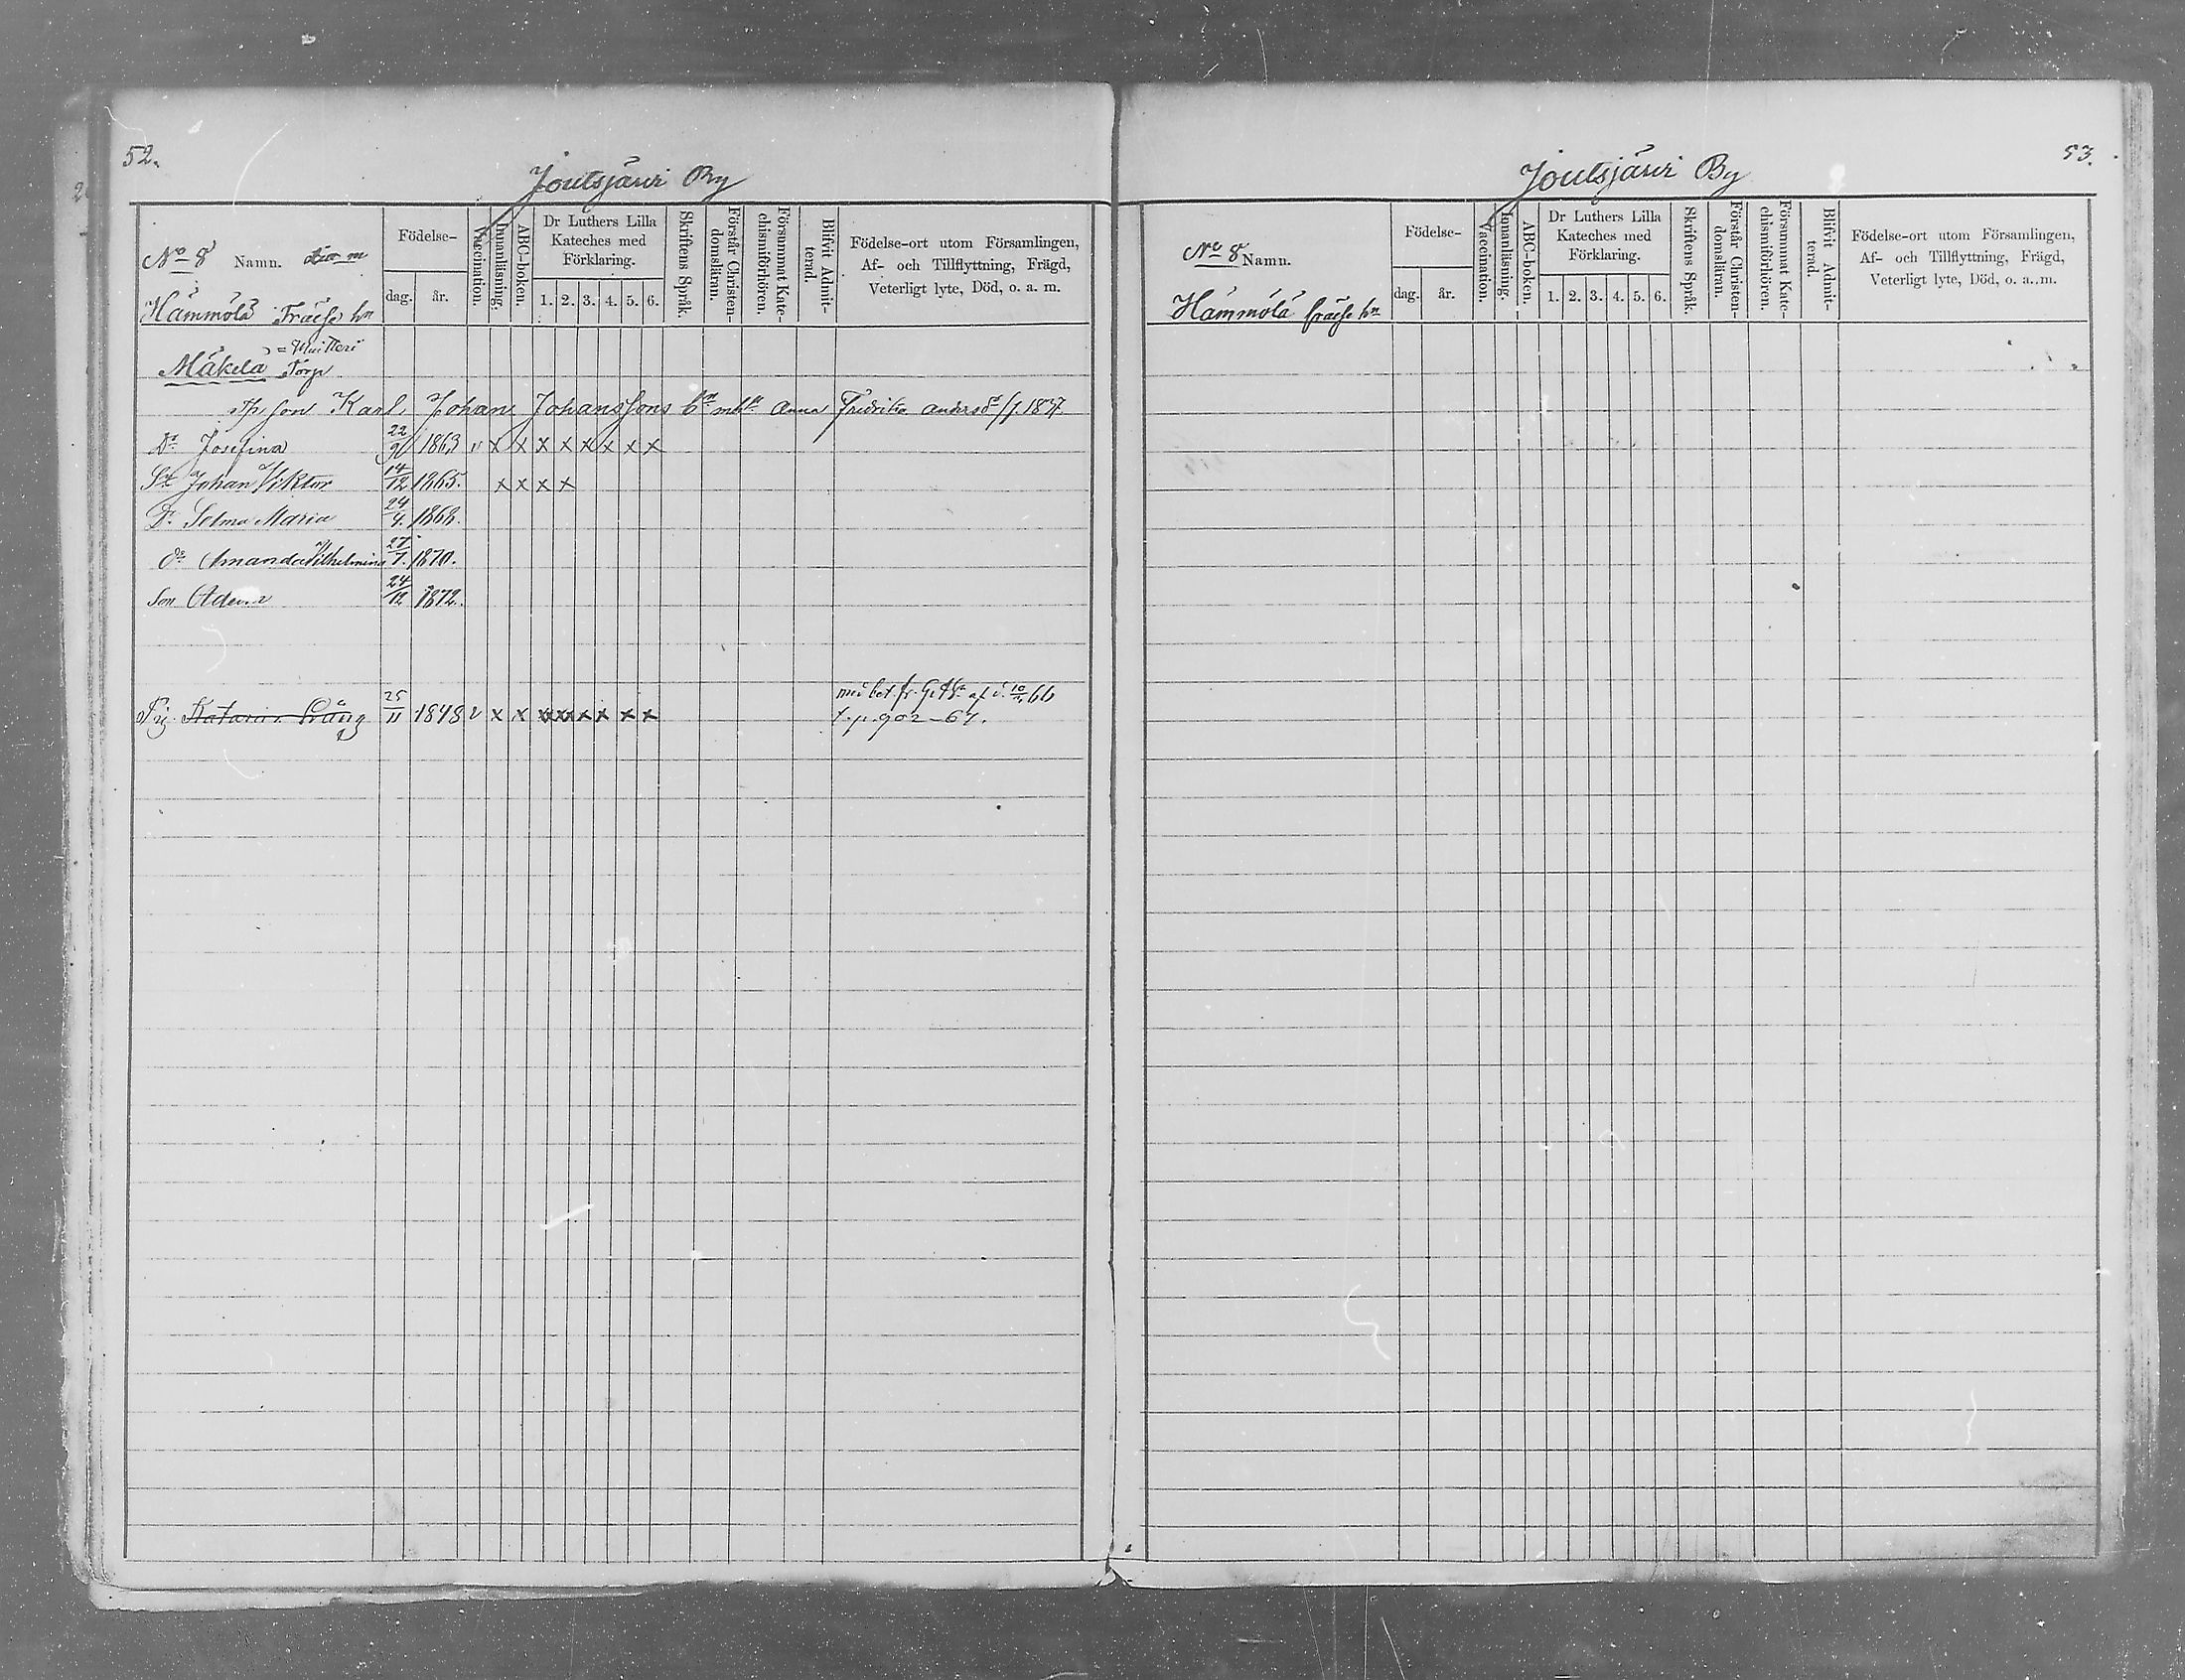 52.
Joutsjärvi By
No 8 Namn.
Hämmölä Frälse hn
Födelse-
dag. år.
Vaccination.
Innanläsning.
ABC-boken.
Dr Luthers Lilla
Kateches med
Förklaring.
1. 2. 3. 4. 5. 6.
Skriftens Språk.
Förstår Christen-
domsläran.
Försummat Kate-
chismiförhören.
Blifvit Admit-
terad.
Födelse-ort utom Församlingen,
Af- och Tillflyttning, Frägd,
Veterligt lyte, Död, o. a. m.
Mäkelä Torp
son Karl Johan Johanssons bn Anna Fredrika Andersdr 1837
Dr Josefina 22/9 1863 x x x x x x x x
Sn Johan Viktor 14/12 1865. x x x x
Dr Selma Maria 24/4. 1868.
Dr Amanda Vilhelmina 27/7. 1870.
Son 24/12 1872.
med bet. fr. af d. 66
Pig. Katarina 25/11 1848 x x x x x x x x
t. p. 902 - 67.
53.
Joutsjärvi By
No 8 Namn.
Hämmölä frälse hn
Födelse-
dag. år.
Vaccination.
Innanläsning.
ABC-boken.
Dr Luthers Lilla
Kateches med
Förklaring.
1. 2. 3. 4. 5. 6.
Skriftens Språk.
Förstår Christen-
domsläran.
Försummat Kate-
chismiförhören.
Blifvit Admit-
terad.
Födelse-ort utom Församlingen,
Af- och Tillflyttning, Frägd,
Veterligt lyte, Död, o. a. m.